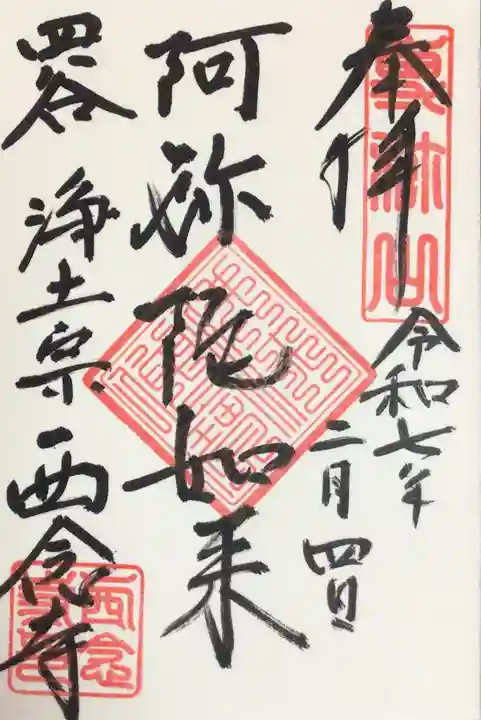 奉拝
令和七年
二月四日
阿弥陀如来
四谷 浄土宗 西念寺
西念